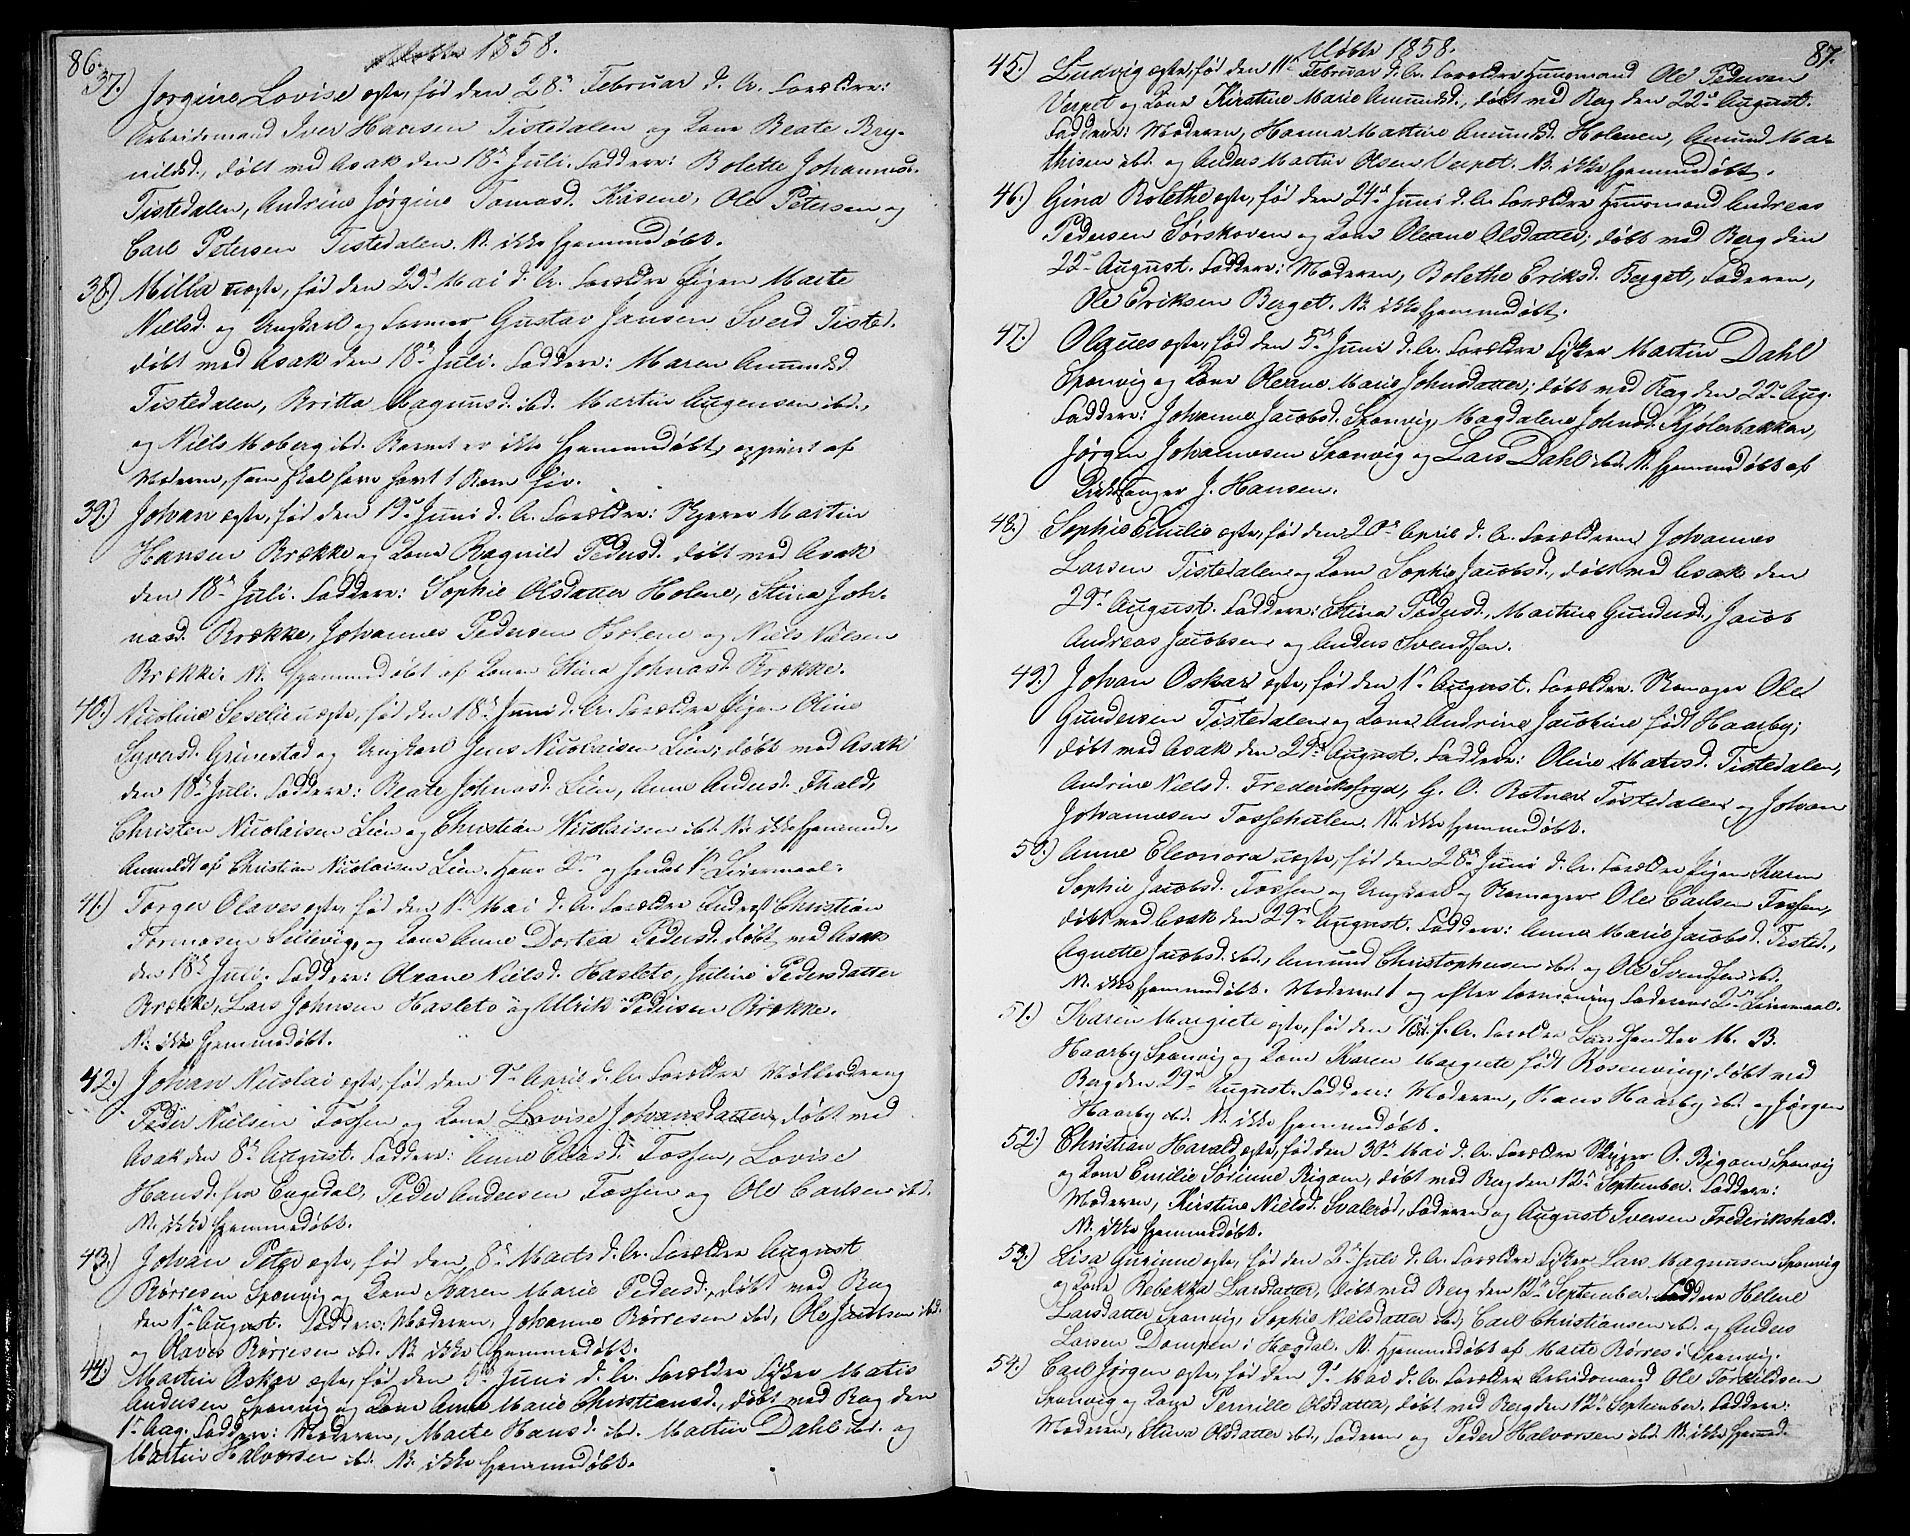 86. Døbte 1858.
37.) Jørgine Lovise ægte, født den 28de Februar d. A. Forældre:
Arbeidsmand Iver Hansen Tistedalen og Kone Beate Bry-
nildsd., døbt ved Asak den 18de Juli. Faddere: Bolette Johannesd.
Tistedalen, Andrine Jørgine Tomasd. Kasene, Ole Petersen og
Carl Petersen Tistedalen. N. ikke hjemmedøbt.
38.) Milla uægte, født den 23de Mai d. A. Forældre Pigen Marte
Nielsd. og Ungkarl og Former Gustav Jansen Sverd Tisted.
døbt ved Asak den 18de Juli. Faddere: Maren Amundsd
Tistedalen, Britta Magnusd. ibd. Martin Augensen ibd.,
og Niels Moberg ibd. Barnet er ikke hjemmedøbt, opgivet af
Moderen, som skal have havt 1 Barn før.
39.) Johan ægte, født den 19de Juni d. A. Forældre: Kjører Martin
Hansen Brække og Kone Ragnild Pedersd. døbt ved Asak
den 18de Juli. Faddere: Sophie Olsdatter Holene, Stina Joh-
nasd. Brække, Johannes Pedersen Holene og Niels Nielsen
Brække. N. hjemmedøbt af Konen Stina Johnasd. Brække.
40.) Nicoline Seselie uægte, født den 18de Juni d. A. Forældre Pigen Oline
Syversd. Grimestad og Ungkarl Jens Nicolaisen Lien; døbt ved Asak
den 18de Juli. Faddere: Beate Johnasd. Lien, Anne Andersd. Fhald,
Christen Nicolaisen Lien og Christian Nicolaisen ibd. N. ikke hjemmed.
Anmeldt af Christian Nicolaisen Lien. Hans 2det og hendes 1ste Leiermaal.
41.) Torger Olaves ægte, født den 1ste Mai d. A. Forældre Inderst Christian
Tormosen Sellevig, og Kone Anne Dortea Pedersd. døbt ved Asak
den 18de Juli. Faddere: Oleane Nielsd. Hasleto, Juline Pedersdatter
Brække, Lars Johnsen Hasleto og Ulrik Pedersen Brække.
N. ikke hjemmedøbt.
42.) Johan Nicolai ægte, født den 9de April d. A. Forældre Møllerdreng
Peder Nielsen Fossen og Kone Lovise Johansdatter, døbt ved
Asak den 8de August. Faddere: Anne Clasd. Fossen, Lovise
Hansd. fra Engedal, Peder Andersen Fossen og Ole Carlsen ibd.
N. ikke hjemmedøbt.
43.) Johan Peter ægte, født den 8de Marts d. A. Forældre August
Børresen Sponvig og Kone Karen Marie Pedersd., døbt ved Berg
den 1ste August. Faddere: Moderen, Johanne Børresen ibd., Ole Jacobsen ibd.
og Olaves Børresen ibd. N. ikke hjemmedøbt.
44.) Martin Oskar ægte, født den 5te Juni d. A. Forældre Fisker Matis
Andersen Sponvig og Kone Anne Marie Christiansd., døbt ved Berg den
1ste Aug. Faddere: Moderen, Marte Hansd. ibd. Martin Dahl ibd. og
Martin Halvorsen ibd. N. ikke hjemmedøbt.
Døbte 1858. 87.
45.) Ludvig ægte, født den 11te Februar d. A. Forældre Huusmand Ole Pedersen
Verpet og Kone Kirstine Marie Amundsd., døbt ved Berg den 22de August.
Faddere: Moderen, Hanna Martine Amundsd. Holenen, Amund Ma-
thisen ibd. og Anders Martin Olsen Verpet. N. ikke hjemmedøbt.
46.) Gina Bolethe ægte, født den 24de Juni d. A. Forældre Huusmand Andreas
Pedersen Sørskoven og Kone Oleane Olsdatter; døbt ved Berg den
22de August. Faddere: Moderen, Bolethe Eriksd. Berget, Faderen,
Ole Eriksen Berget. N. ikke hjemmedøbt.
47.) Olaves ægte, født den 5te Juni d. A. Forældre Fisker Martin Dahl
Sponvig og Kone Oleane Marie Johnsdatter; døbt ved Berg den 22de Aug.
Faddere: Johanne Jacobsd. Sponvig, Magdalene Johnsd. Kjølerbakken,
Jørgen Johannesen Sponvig og Lars Dahl ibd. N. hjemmedøbt af
Kirkesanger J. Hansen.
48.) Sophie Emilie ægte, født den 20de April d. A. Forældrene Johannes
Larsen Tistedalen og Kone Sophie Jacobsd., døbt ved Asak den
29de August. Faddere: Stina Pedersd., Martine Gundersd., Jacob
Andreas Jacobsen og Anders Svendsen.
49.) Johan Oskar ægte, født den 1ste August. Forældre. Skomager Ole
Gundersen Tistedalen og Kone Andrine Jacobine født Haarby;
døbt ved Asak den 29de August. Faddere: Oline Matisd. Tistedalen,
Andrine Nielsd. Frederikshald, G. O. Rotner Tistedalen og Johan
Johannesen Fossehulen. N. ikke hjemmedøbt.
50.) Anne Eleonora uægte, født den 28de Juni d. A. Forældre Pigen Karen
Sophie Jacobsd. Fossen og Ungkarl og Skomager Ole Carlsen Fossen,
døbt ved Asak den 29de August. Faddere: Anne Marie Jacobsd. Tisted.,
Agnette Jacobsd. ibd., Amund Christophersen ibd. og Ole Svendsen ibd.
N. ikke hjemmedøbt. Moderens 1 og efter Formening Faderens 2det Leiermaal.
51.) Karen Margrete ægte, født den f. A. Forældre Landhandler M. B.
Haarby Sponvig og Kone Karen Margrete født Rosenving; døbt ved
Berg den 29de August. Faddere: Moderen, Hans Haarby ibd. og Jørgen
Haarby ibd. N. ikke hjemmedøbt.
52.) Christian Harald ægte, født den 30te Mai d. A. Forældre Skipper O. Bigam Sponvig
og Kone Emilie Sørinne Bigam, døbt ved Berg den 12te September. Faddere:
Moderen, Kirstine Nielsd. Svalerød, Faderen og August Iversen Frederikshald.
N. ikke hjemmedøbt.
53.) Lisa Gurinne ægte, født den 2de Juli d. A. Forældre Fisker Lars Magnusen Sponvig
og Kone Rebekka Larsdatter, døbt ved Berg den 12te September. Faddere Helene
Larsdatter Sponvig, Sophie Nielsdatter ibd., Carl Christiansen ibd. og Anders
Larsen Dampen i Hogdal. N. hjemmedøbt af Marte Børres i Sponvig.
54.) Carl Jørgen ægte, født den 9de Mai d. A. Forældre Arbeidsmand Ole Torkildsen
Sponvig og Kone Pernille Olsdatter, døbt ved Berg den 12te September. Faddere:
Moderen, Stina Olsdatter ibd., Faderen og Peder Halvorsen ibd. N. ikke hjemd.